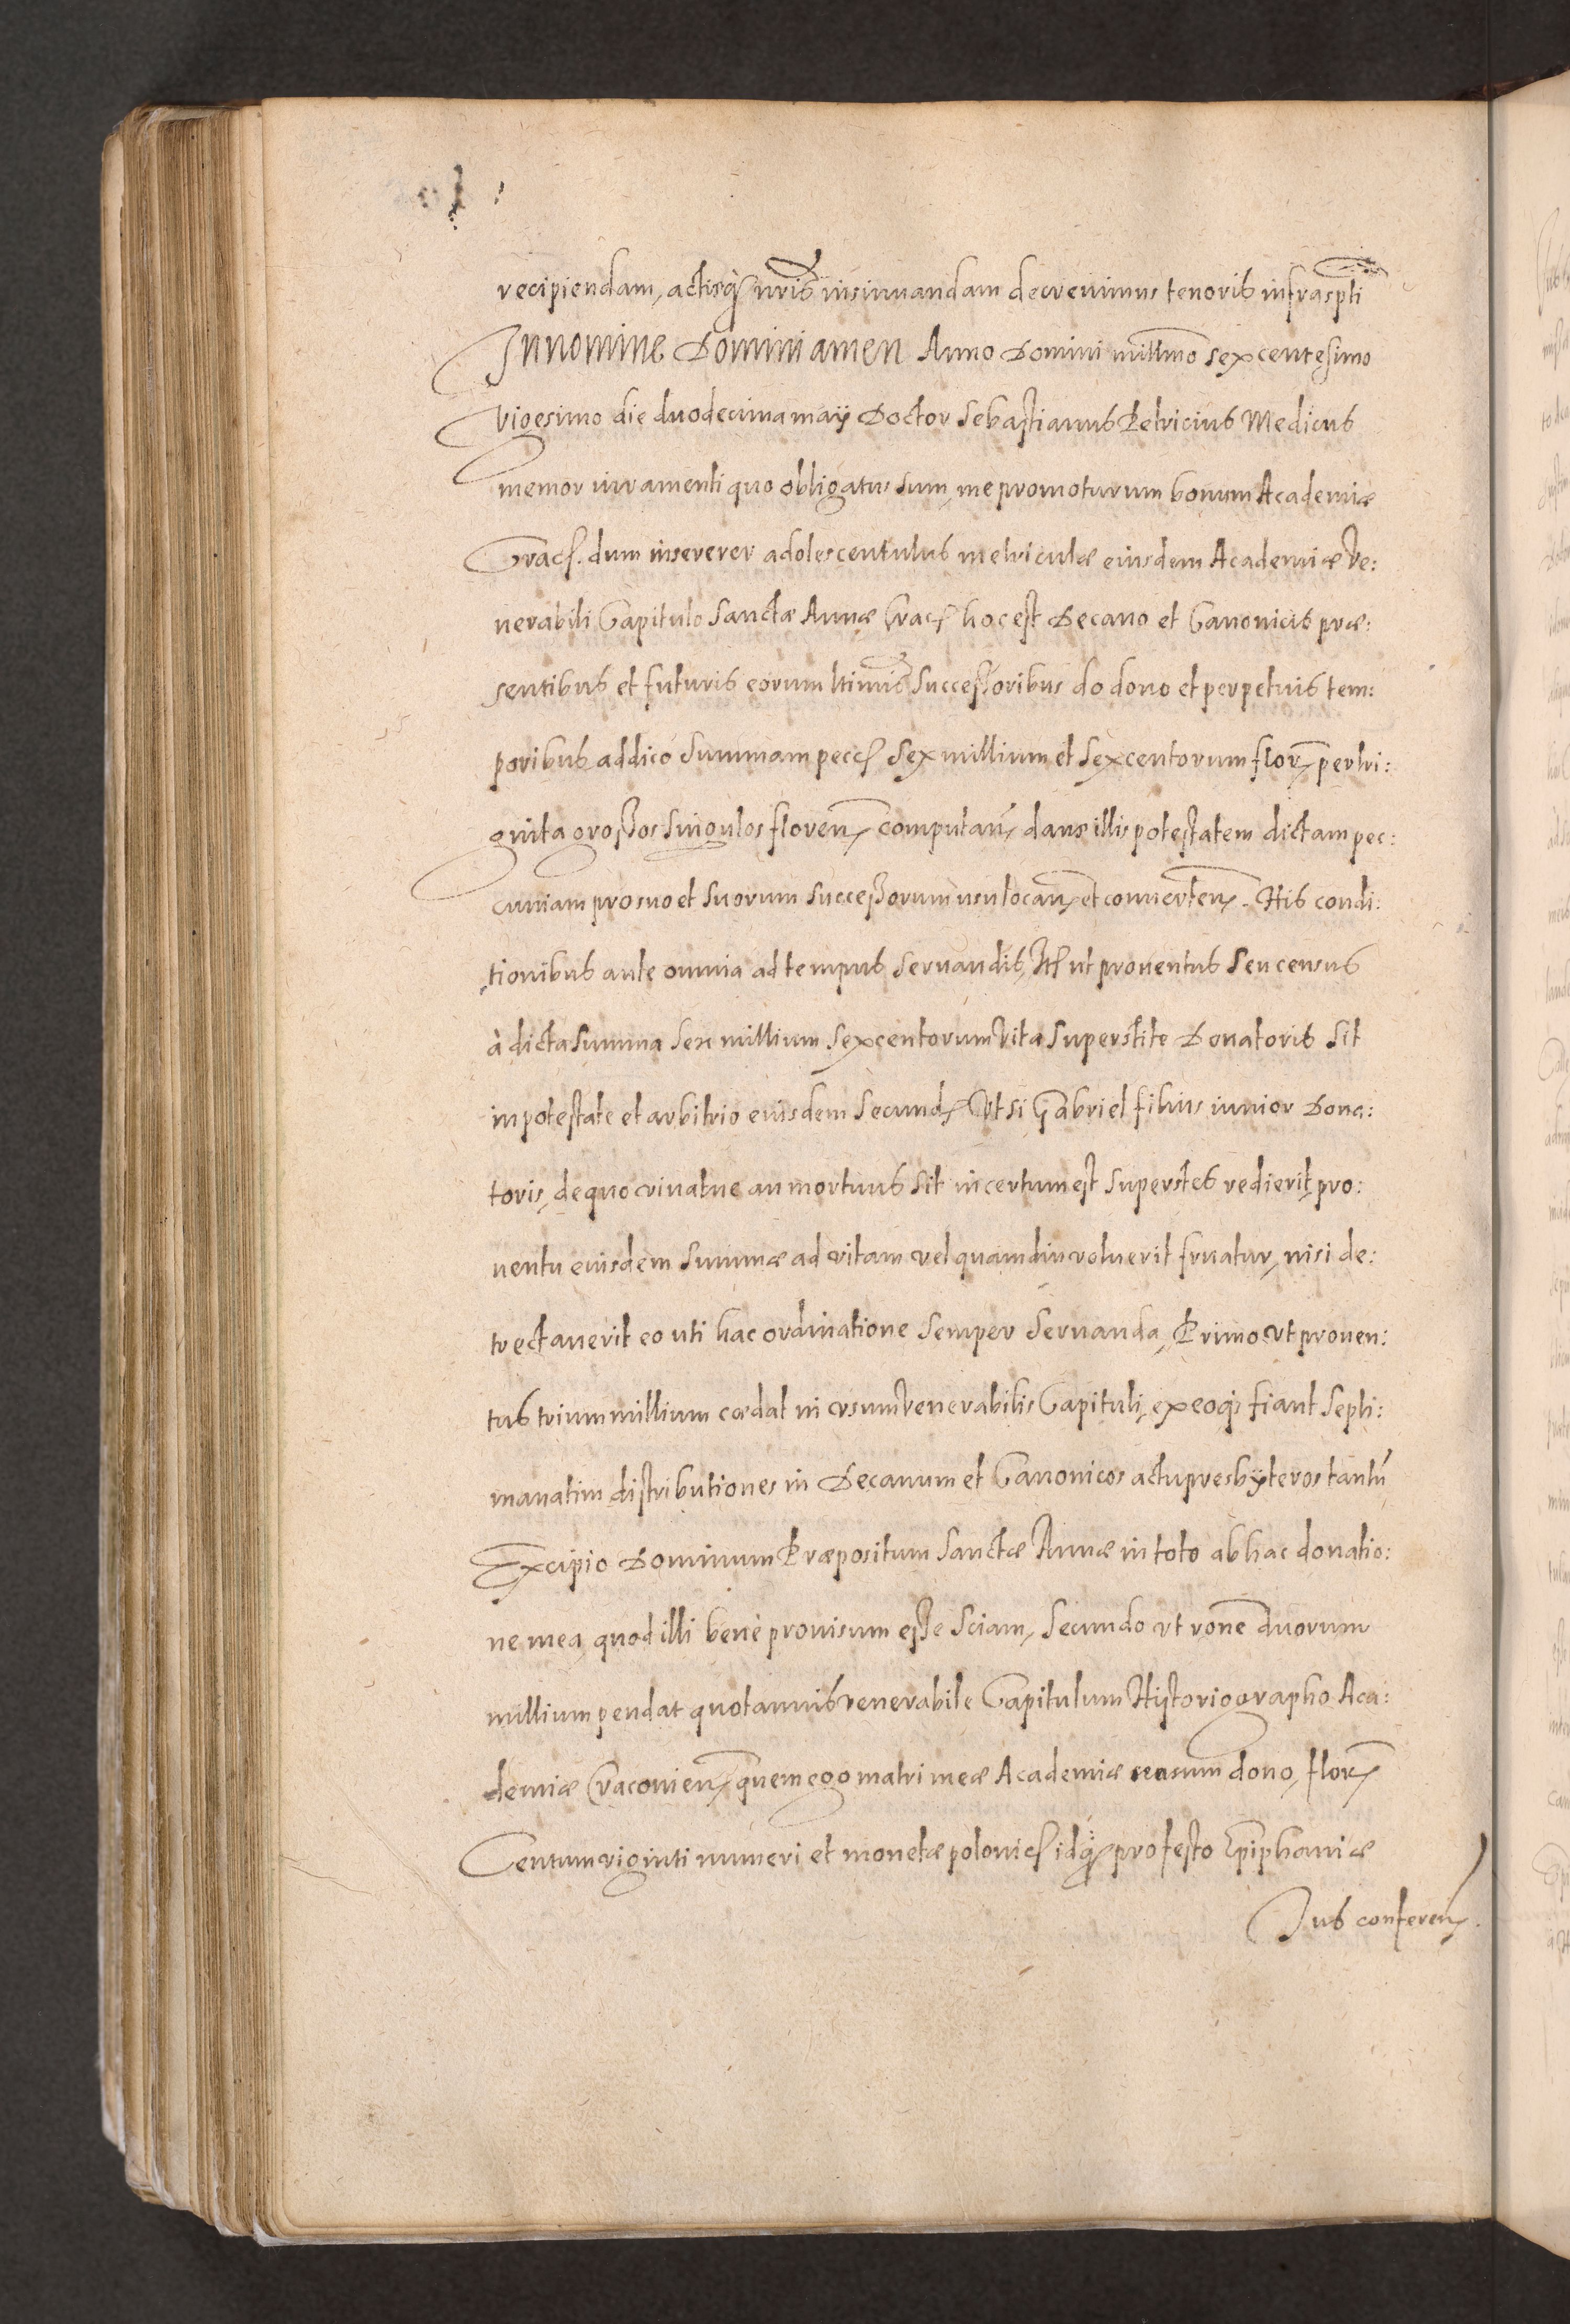 recipiendam, actisq₃ nris insinuandam decrevimus tenoris infraspti
In nomine Domini amen Anno Domini millmo sexcentesimo
vigesimo die duodecima maÿ Doctor Sebastianus Petricius Medicus
memor iuramenti quo obligatus sum, me promoturum bonum Academiæ
Crac. dum insererer adolescentulus metriculæ eiusdem Academiæ Ve:
nerabili Capitulo Sanctæ Annæ Crac hoc est Decano et Canonicis præ:
sentibus et futuris eorum ltimis Successoribus do dono et perpetuis tem:
poribus addico Summam pecc Sex millium et Sexcentorum flor per tri:
ginta grossos singulos floren computan, dans illis potestatem dictam pec:
cuniam pro suo et suorum successorum usu locan et conuerten. His condi:
tionibus ante omnia ad tempus seruandis, Itt ut prouentus seu census
à dicta summa sex millium sexcentorum vita superstite Donatoris sit
in potestate et arbitrio eiusdem Secund Ut si Gabriel filius iunior Dona:
toris, de quo vivatne an mortuus sit incertum est superstes redierit, pro:
uentu eiusdem summæ ad vitam vel quamdiu voluerit fruatur, nisi de:
trectauerit eo uti hac ordinatione semper seruanda, Primo vt prouen:
tus trium millium cædat in vsum Venerabilis Capituli, ex eoq₃ fiant Septi:
manatim distributiones in Decanum et Canonicos actu presbÿteros tantũ
Excipio Dominum Præpositum Sanctæ Annæ in toto ab hac donatio:
ne mea, quod illi benè prouisum esse sciam, Secundo vt rone duorum
millium pendat quotannis venerabile Capitulum Historiographo Aca:
demiæ Cracouien, quem ego matri meæ Academiæ dono, flor
Centum viginti numeri et monetæ polonic idq₃ pro festo Epiphaniæ
Ius conferen.